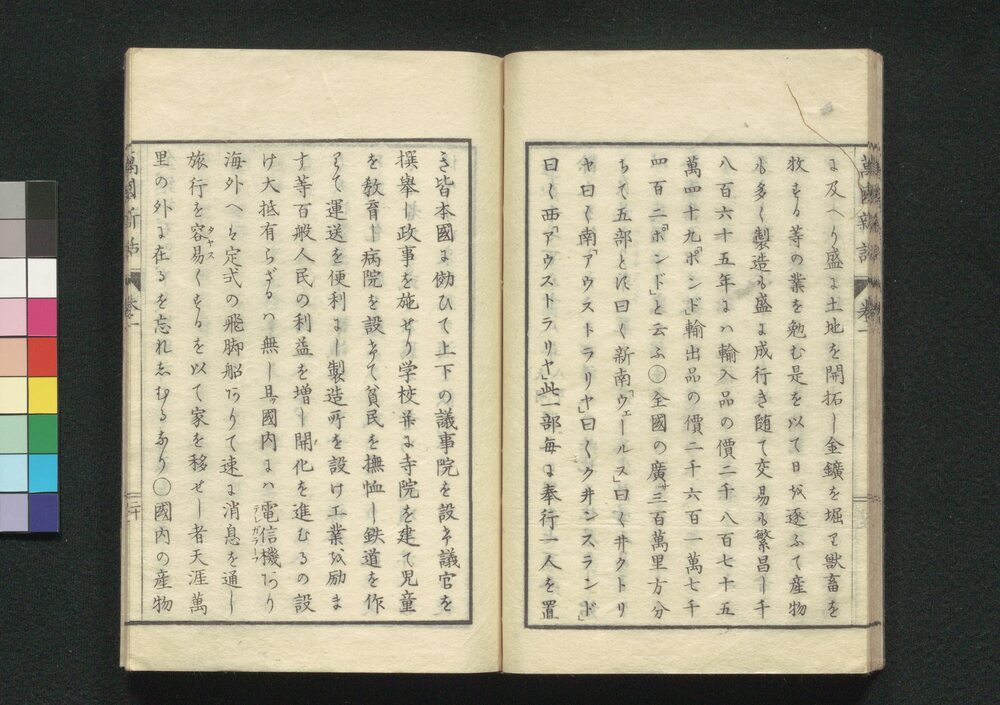 萬國新話 巻一
に及へり盛に土地を開拓し金鑛を堀り獣畜を
牧する等の業を勉む是を以て日を逐ふて産物
も多く製造も盛に成行き随て交易も繁昌し千
八百六十五年にハ輸入品の價二千八百七十五
萬四十九「ポンド」輸出品の價二千六百一萬七千
四百二「ポンド」と云ふ○全國の廣サ三百萬里方分
ちて五部とに曰く新南「ウェールス」曰く井クトリ
ヤ曰く南「アウストラリヤ」曰くク井ンスランド」
曰く西「アウストラリヤ」此一部毎に奉行一人を置
き皆本國に倣ひて上下の議事院を設け議官を
撰舉し政事を施せり学校并に寺院を建て児童
を教育し病院を設けて貧民を撫恤し鉄道を作
りて運送を便利にし製造所を設け工業を励ま
す等百般人民の利益を増し開化を進むるの設
け大抵有らざるハ無し且國内にハ電信機テレガラーフありり
海外へも定式の飛脚船ありて速に消息を通し
旅行を容易タヤスくするを以て家を移せし者天涯萬
里の外に在るを忘れしむるなり○國内の産物
萬國新話 巻一 二十